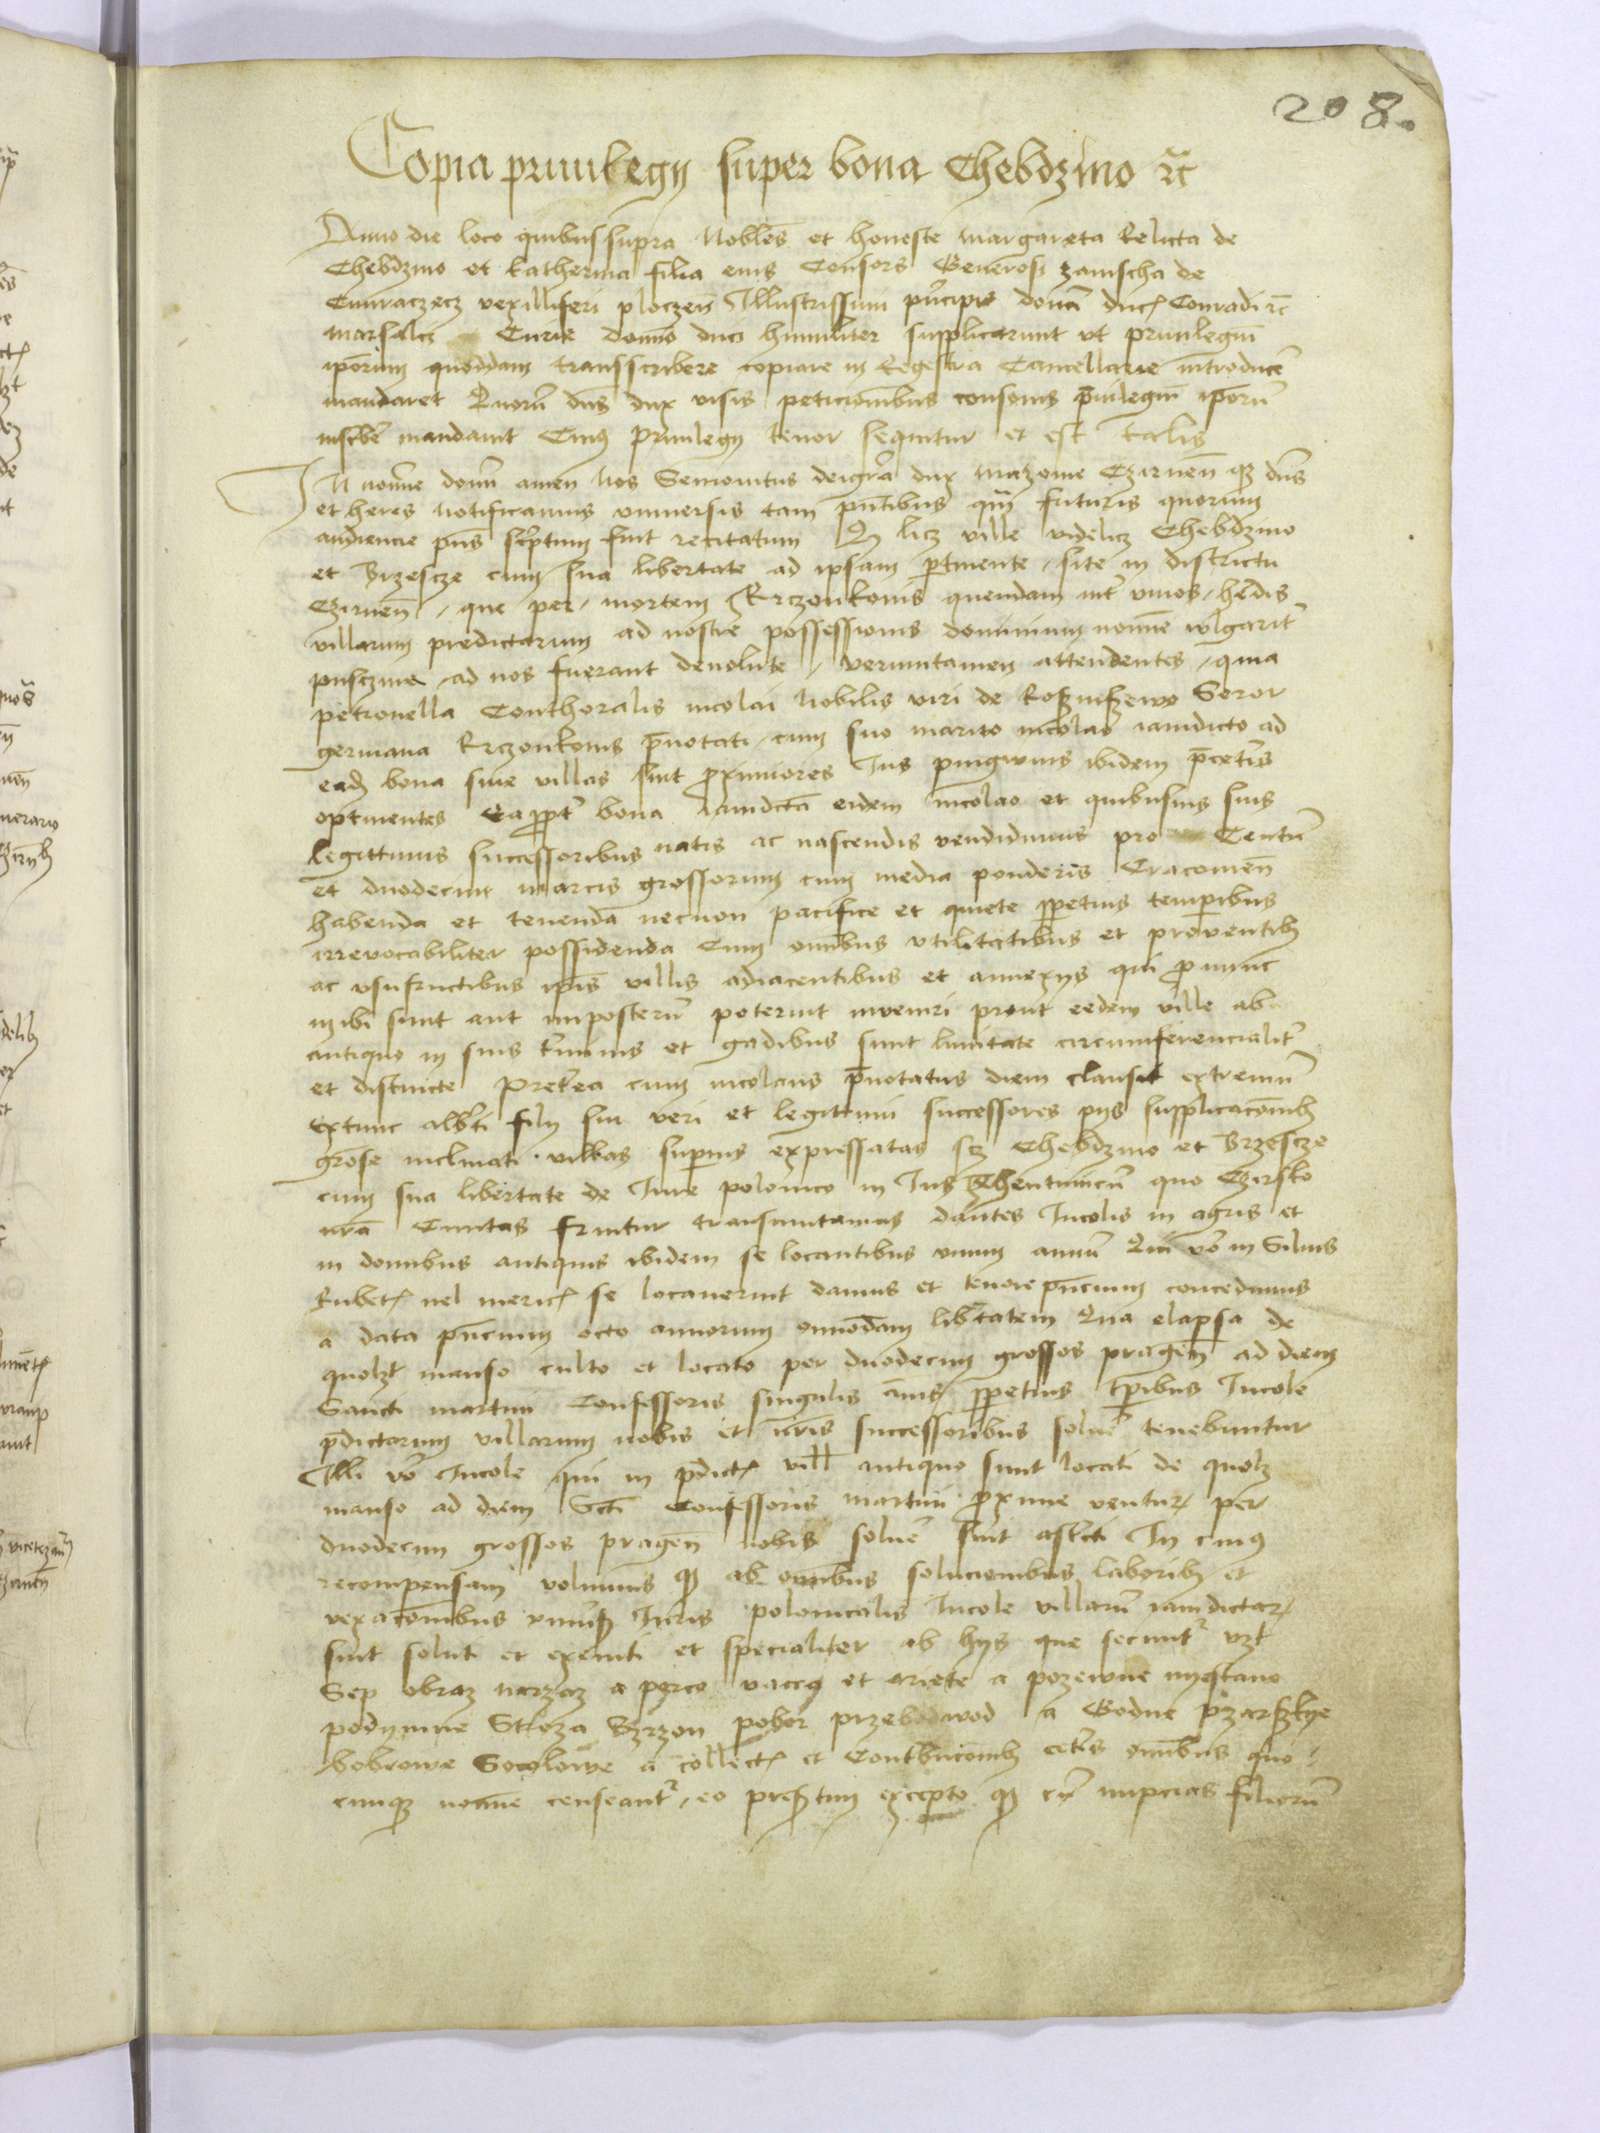 208.
Copia priuilegy super bona Chebdzino rc̃
Anno die loco quibus supra Nobiles et honeste Margareta Relicta de
Chebdzino et katherina filia eius Consors Generosi zamscha de
vexilliferi ploczen̄ Illustrissimi pͥncipis domĩ ducꝭ Conradi rc̃
Marsalci Curie domino duci humiliter supplicarunt vt priuilegiū
ip̄orum quoddam transscribere copiare in Regestra Cancellarie introducẽ
mandaret Quorū dn̄s dux visis peticionibus consonis p̄uilegiū ip̄orū
inscͥbẽ mandauit Cuiꝰ priuilegy tenor sequitur et est talis
In nomine domini amen Nos Semouitus dei grã dux Mazouie Czirnen̄ qꝫ dn̄s
et heres Notificamus vniuersis tam pn̄tibus qͣm futuris quorum
audiencie pn̄s scͥptum fuit recitatum Qꝫ licꝫ ville videlicꝫ Chebdzino
et Brzescze cum sua libertate ad ipsam ꝑtinente / site in districtu
Czirnen̄ / que per / mortem Krczonkonis quendam int̃ viuos / he͛dis
villarum predictarum ad nostre possessionis dominium nomine wlgarit̃
pusczina / ad nos fuerant deuolute / verumtamen attendentes / quia
petronella Conthoralis nicolai Nobilis viri de Soror
germana Krczonkonis p̄notati / cum suo marito nicolao iamdicto ad
eadꝫ bona siue villas sint ꝓximiores Ius pingwius ibidem p̄ cetis̃
optinentes Eaꝓpt̃ bona iamdicta eidem Nicolao et quibusuis suis
legittimis successoribus natis ac nascendis vendidimus pro Centū
et duodecim marcis grossorum cum media ponderis Cracouien̄
habenda et tenenda necnon pacifice et quiete ꝑpetuis temꝑibus
irreuocabiliter possidenda Cum omībus vtilitatibus et prouentibꝫ
ac vsufructibus ip̄is villis adiacentibus et annexys qui ꝓ nunc
inibi sunt aut imposterū poterint inueniri prout eedem ville ab
antiquo in suis t͛minis et gadibus sunt limitate circumferencialit̃
et distincte Preterea cum nicolaus p̄notatus diem clausit extremū
extunc alb͛ti fily sui veri et legitimi successores pys supplicacõibꝫ
grõse inclinati villas suꝑius expressatas scꝫ Chebdzino et Brzescze
cum sua libertate de Iure polonico in Ius Thentunicū quo Czirsko
nrã Ciuitas fruitur transmutamus dantes Incolis in agris et
in domibus antiquis ibidem se locantibus vnum annū Qui vo͛ in Siluis
Rubetꝭ uel mericꝭ se locauerint damus et tenore pn̄cium concedimus
a data pn̄cium octo annorum omnõdam lib͛tatem Qua elapsa de
quolꝫt manso culto et locato per duodecim grossos pragen̄ ad diem
Sancti martini Confessoris singulis añis ꝑpetuis tꝑibus Incole
p̄dictarum villarum nobis et nris̃ successoribus solue͛ tenebuntur
Illi vo͛ Incole qui in p̄dictꝭ vill̃ antiquo sunt locati de quolꝫ
manso ad diem Scti Confessoris Martini ꝓxime venturꝭ per
duodecim grossos pragen̄ nobis solue͛ sint ast͛cti In cuiꝰ
recompensam volumus qꝫ ab omībus solucionibus laboribꝫ et
vexacõibus vniu͛sꝭ Iuris polonicalis Incole villarū iamdictarꝭ
sint soluti et exemti et specialiter ab hys que secunt͛ vꝫt
Sep obraz narzaz a porco vacca et ariete a pozewne myestano
podymne Stroza Byrzon pobor przewod a Godne pzarskye
bobrowe Socolowe a collectꝭ et Cont͛bucõibꝫ cet͛is omībus quo=
cunqꝫ nomine censeant͛ / eo presertim excepto qꝫ cū nupcias filiorū